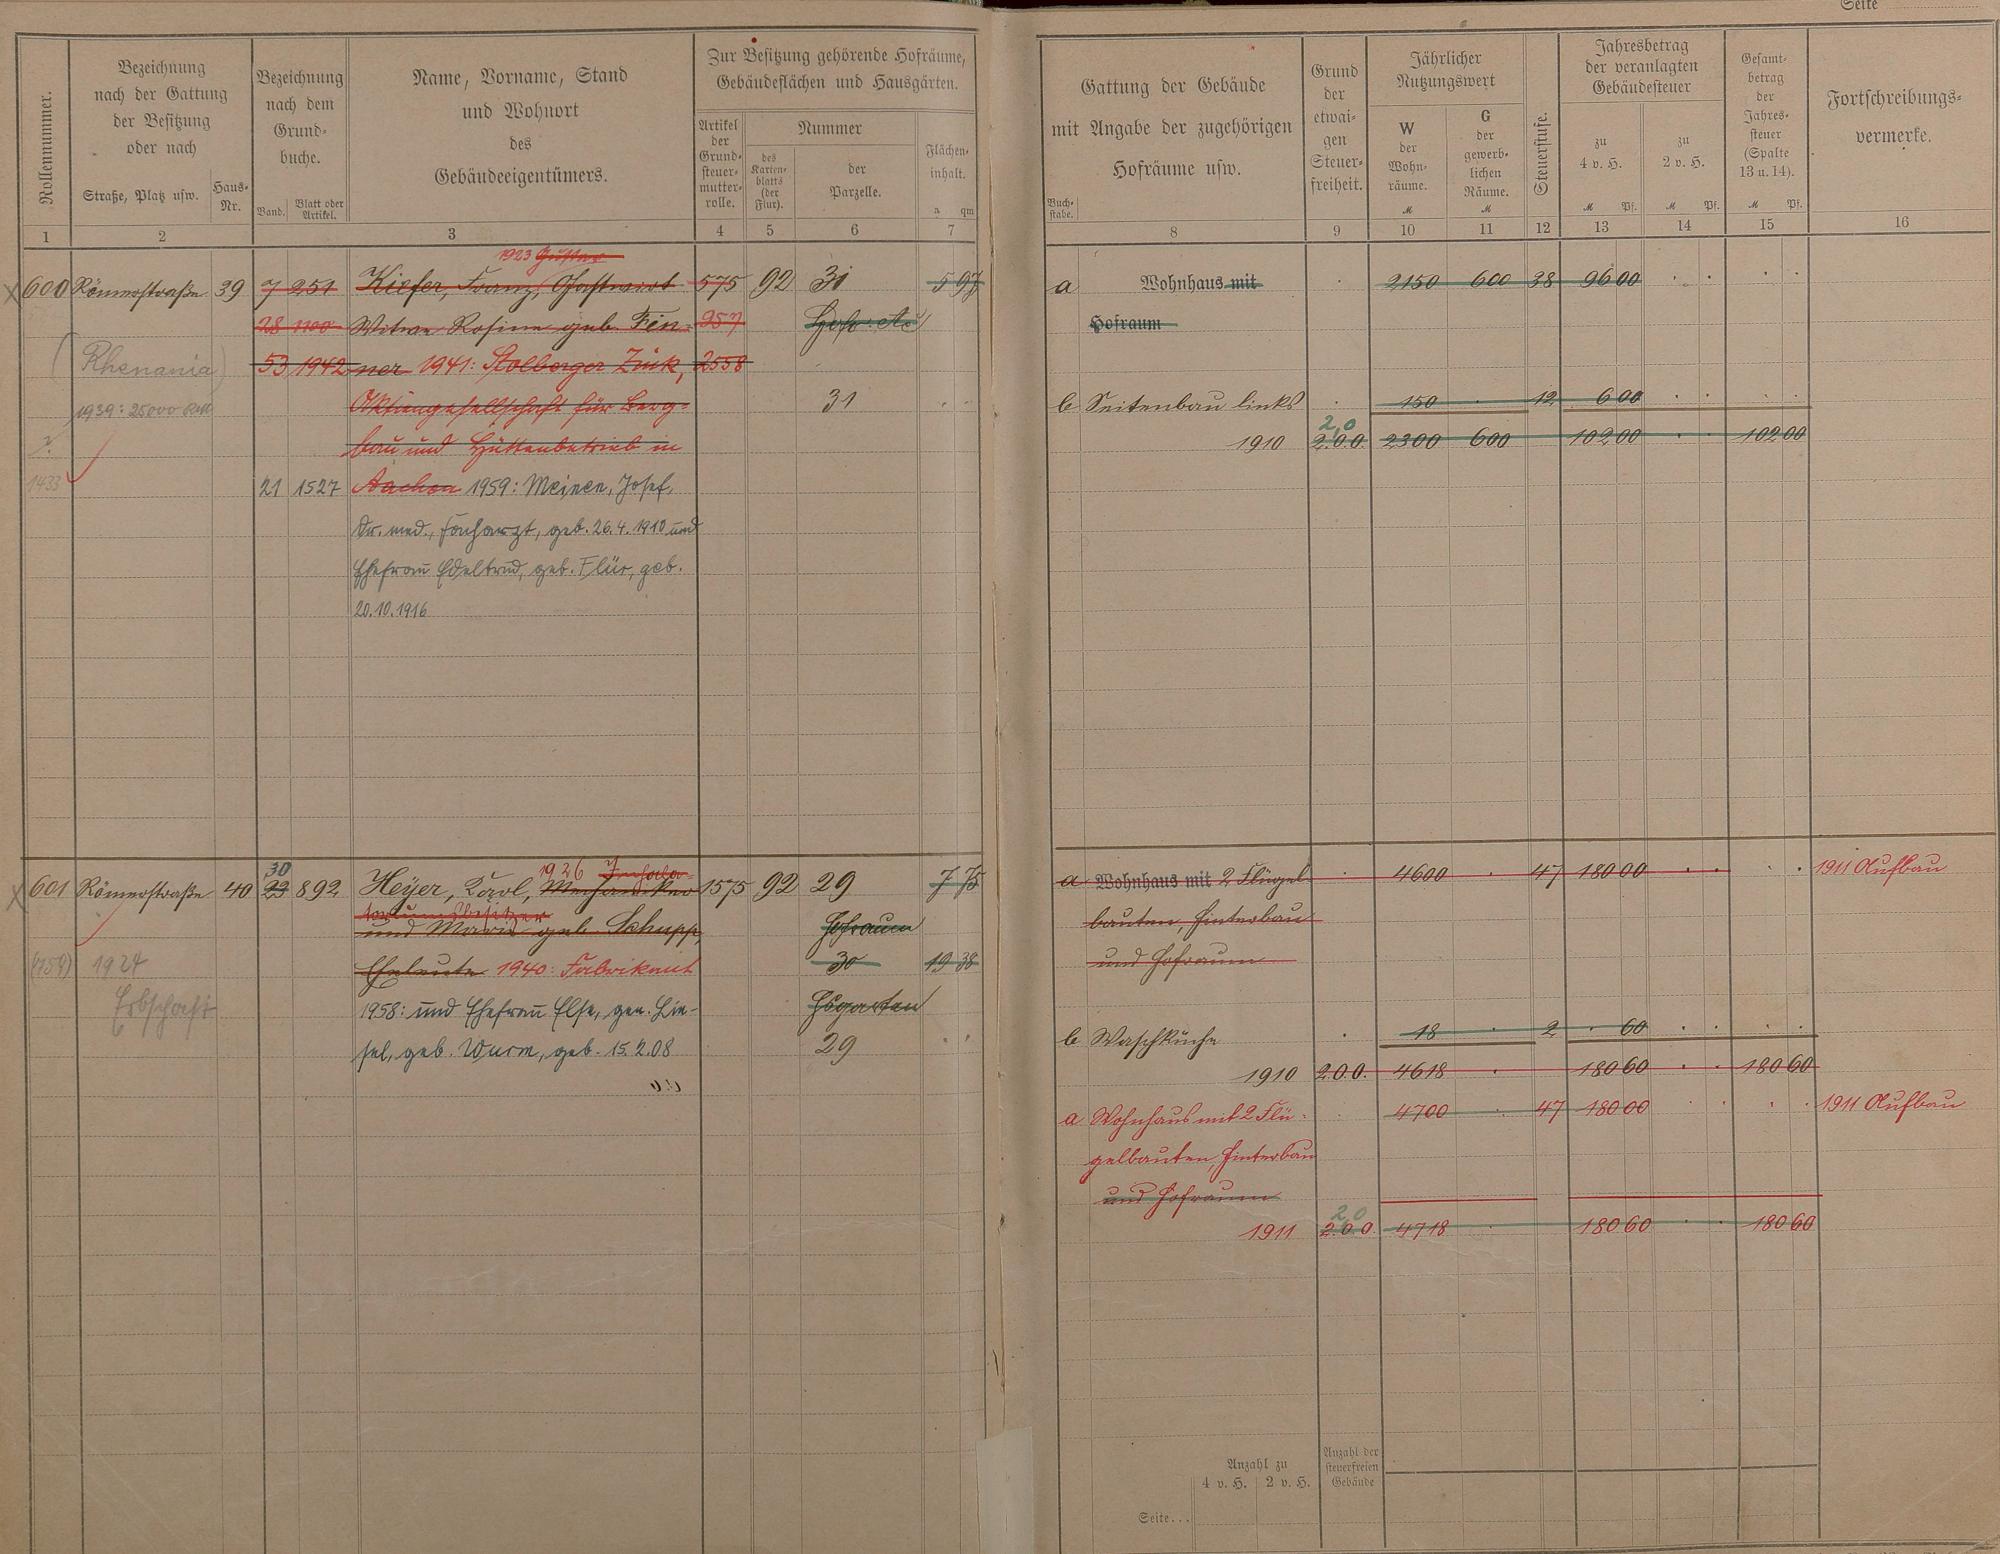 Seite
Rollennummer.
Bezeichnung
nach der Gattung
der Besitzung
oder nach
Straße, Platz usw.
Haus-
Nr.
Bezeichnung
nach dem
Grund-
buche.
Band.
Blatt oder
Artikel.
Name, Vorname, Stand
und Wohnort
des
Gebäudeeigentümers.
Zur Besitzung gehörende Hofräume,
Gebäudeflächen und Hausgärten.
Artikel
der
Grund-
steuer-
mutter-
rolle.
Nummer
des
Karten-
blatts
(der
Flur).
der
Parzelle.
Flächen-
inhalt.
a qm
1 2 3 4 5 6 7
Gattung der Gebäude
mit Angabe der zugehörigen
Hofräume usw.
Buch-
stabe.
Grund
der
etwai-
gen
Steuer-
freiheit.
Jährlicher
Nutzungswert
W
der
Wohn-
räume.
M
G
der
gewerb-
lichen
Räume.
M
Steuerstufe.
Jahresbetrag
der veranlagten
Gebäudesteuer
zu
4 v. H.
M Pf.
zu
2 v. H.
M Pf.
Gesamt-
betrag
der
Jahres-
steuer
(Spalte
13 u. 14).
M Pf.
Fortschreibungs-
vermerke.
8 9 10 11 12 13 14 15 16
1923 Gustav
600 Römerstraße 39 7 251 Kiefer, Franz, Gastwirt 575 92 31 5 97
28 1100 Witwe Rosine geb. Fen- 957 Hofr. etc
(Rhenania) 53 1942 ner 1941: Stolberger Zink, 2558
1939: 25000 RM Aktiengesellschaft für Berg- 31
bau und Hüttenbetrieb in
1433 21 1527 Aachen 1959: Meinen, Josef,
Dr. med., Facharzt, geb. 26.4.1910 und
Ehefrau Edeltrud, geb. Flür, geb.
20.10.1916
a Wohnhaus mit 2150 600 38 96 00
Hofraum
b Seitenbau links 150 12 6 00
2,0
1910 2.0.0. 2300 600 102 00 102 00
30 1926 Inhala-
601 Römerstraße 40 23 892 Heyer, Karl, Mechaniker 1575 92 29 7 75
toriumsbesitzer
und Marie geb. Schupp, Hofraum
(1759) 1924 Eheleute 1940: Fabrikant 30 19 38
Erbschaft 1958: und Ehefrau Else, gen. Lie- Hsgarten
sel, geb. Wurm, geb. 15.2.08 29
a Wohnhaus mit 2 Flügel- 4600 47 180 00 1911 Aufbau
bauten, Hinterbau
und Hofraum
b Waschküche 18 2 60
1910 2.0.0. 4618 180 60 180 60
a Wohnhaus mit 2 Flü- 4700 47 180 00 1911 Aufbau
gelbauten, Hinterbau
und Hofraum
2,0
1911 2.0.0. 4718 180 60 180 60
Anzahl zu
4 v. H. 2 v. H.
Anzahl der
steuerfreien
Gebäude
Seite...